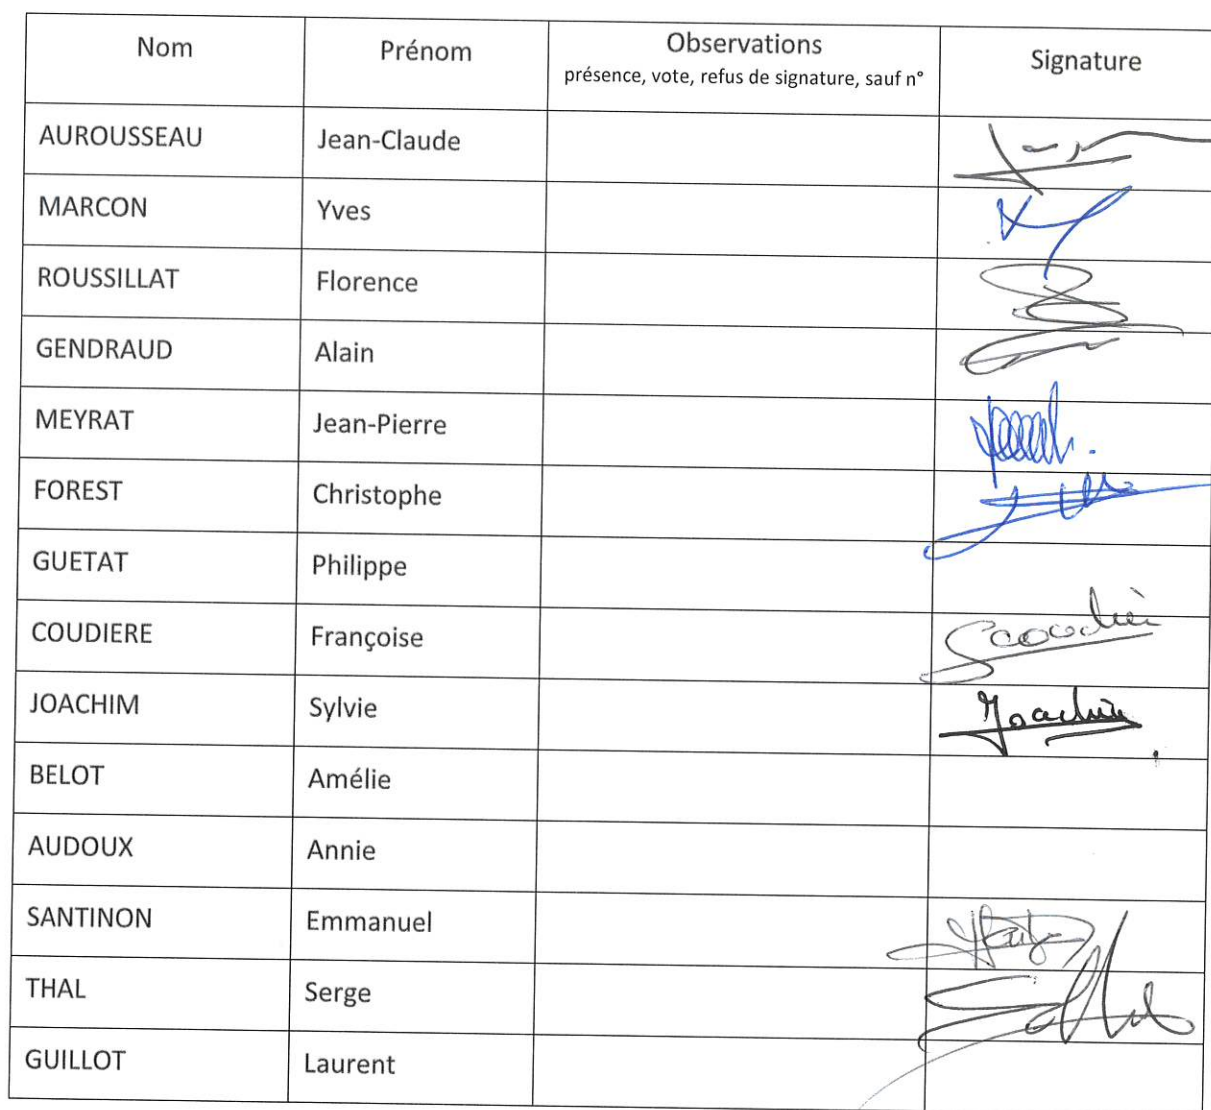 Nom Prénom Observations Signature
présence, vote, refus de signature, sauf n°
AUROUSSEAU Jean-Claude
MARCON Yves
ROUSSILLAT Florence
GENDRAUD Alain
MEYRAT Jean-Pierre
FOREST Christophe
GUETAT Philippe
COUDIERE Françoise
JOACHIM Sylvie Joachim
BELOT Amélie
AUDOUX Annie
SANTINON Emmanuel
THAL Serge
GUILLOT Laurent